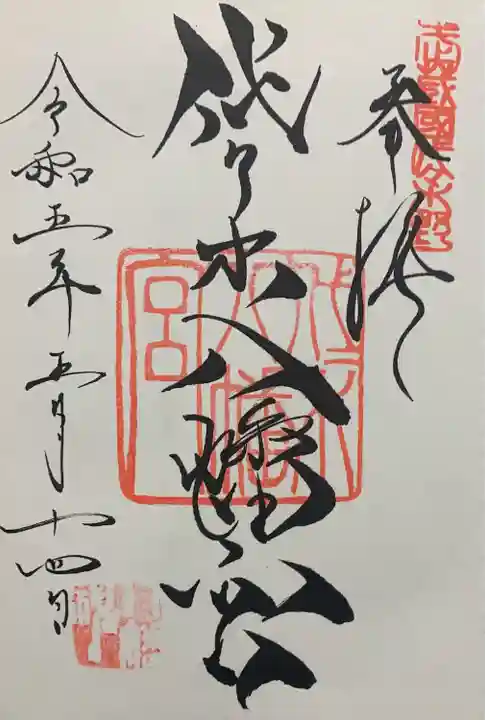 参拝
武蔵國代々木野
代々木八幡宮
代々木八幡宮
令和五年五月十四日